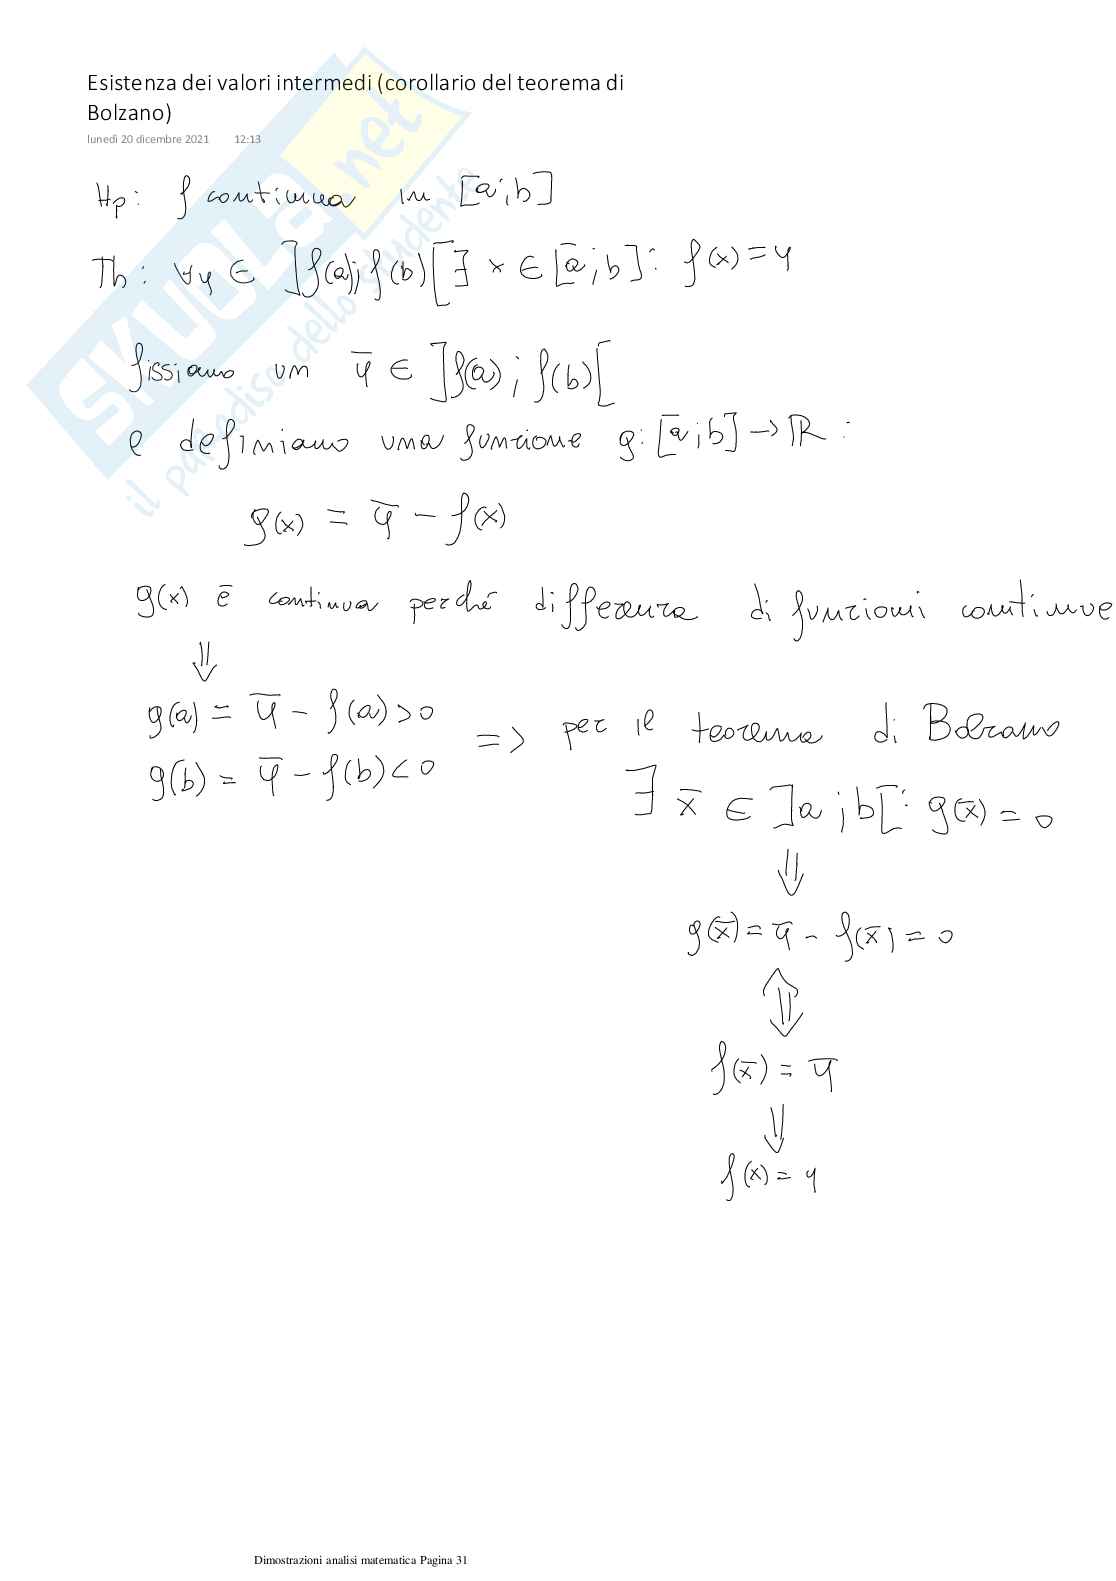 Esistenza dei valori intermedi (corollario del teorema di
Bolzano)
lunedì 20 dicembre 2021 12:13
SKUOLA.net
il paradiso dello studente
Hp: f continua in [a;b]
Th: ∀y ∈ ]f(a); f(b)[ ∃ x ∈ [a;b]: f(x)=y
fissiamo un ȳ ∈ ]f(a); f(b)[
e definiamo una funzione g: [a;b] → ℝ :
g(x) = ȳ − f(x)
g(x) è continua perché differenza di funzioni continue
⇓
g(a) = ȳ − f(a) > 0
g(b) = ȳ − f(b) < 0
=> per il teorema di Bolzano
∃ x̄ ∈ ]a;b[: g(x̄) = 0
⇓
g(x̄) = ȳ − f(x̄) = 0
⇕
f(x̄) = ȳ
⇓
f(x) = y
Dimostrazioni analisi matematica Pagina 31